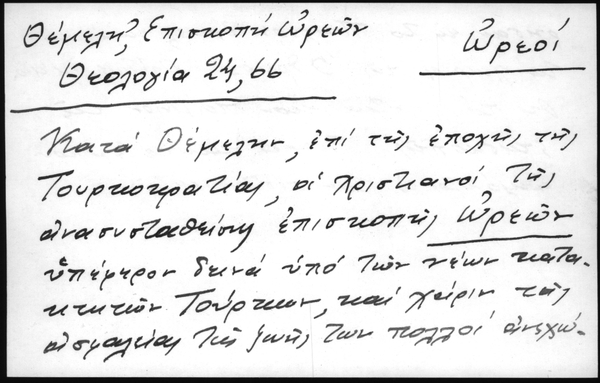 Θέμελη, Επισκοπή Ὠρεῶν
Ὠρεοί
Θεολογία 24, 66
Κατά Θέμελην, ἐπί τῆς ἐποχῆς τῆς
Τουρκοκρατίας, οἱ χριστιανοί τῆς
ἀνασυσταθείσης ἐπισκοπῆς Ὠρεῶν
ὑπέφερον δεινά ὑπό τῶν νέων κατα-
κτητῶν Τούρκων, καί χάριν τῆς
ἀσφαλείας τῆς ζωῆς των πολλοί ἀνεχώ-